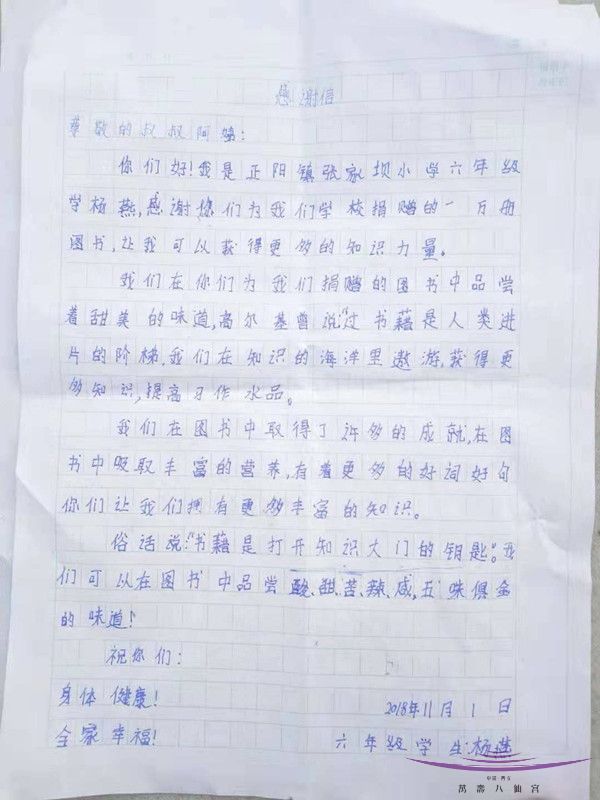 感谢信
尊敬的叔叔阿姨:
你们好!我是正阳镇张家坝小学六年级
学杨燕,感谢您们为我们学校捐赠的一万册
图书,让我可以获得更多的知识力量。
我们在你们为我们捐赠的图书中品尝
着甜美的味道,高尔基曾说:"过书藉是人类进
片的阶梯,我们在知识的海洋里遨游,获得更
多知识,提高习作水品。
我们在图书中取得了许多的成就,在图
书中吸取丰富的营养,有着更多的好词好句
你们让我们拥有更多丰富的知识。
俗话说:"书藉是打开知识大门的钥匙。"我
们可以在图书中品尝酸、甜、苦、辣、咸,五味俱全
的味道!
祝你们:
身体健康!
2018年11月1日
全家幸福!
六年级学生:杨燕
中国·西安
萬壽八仙宮